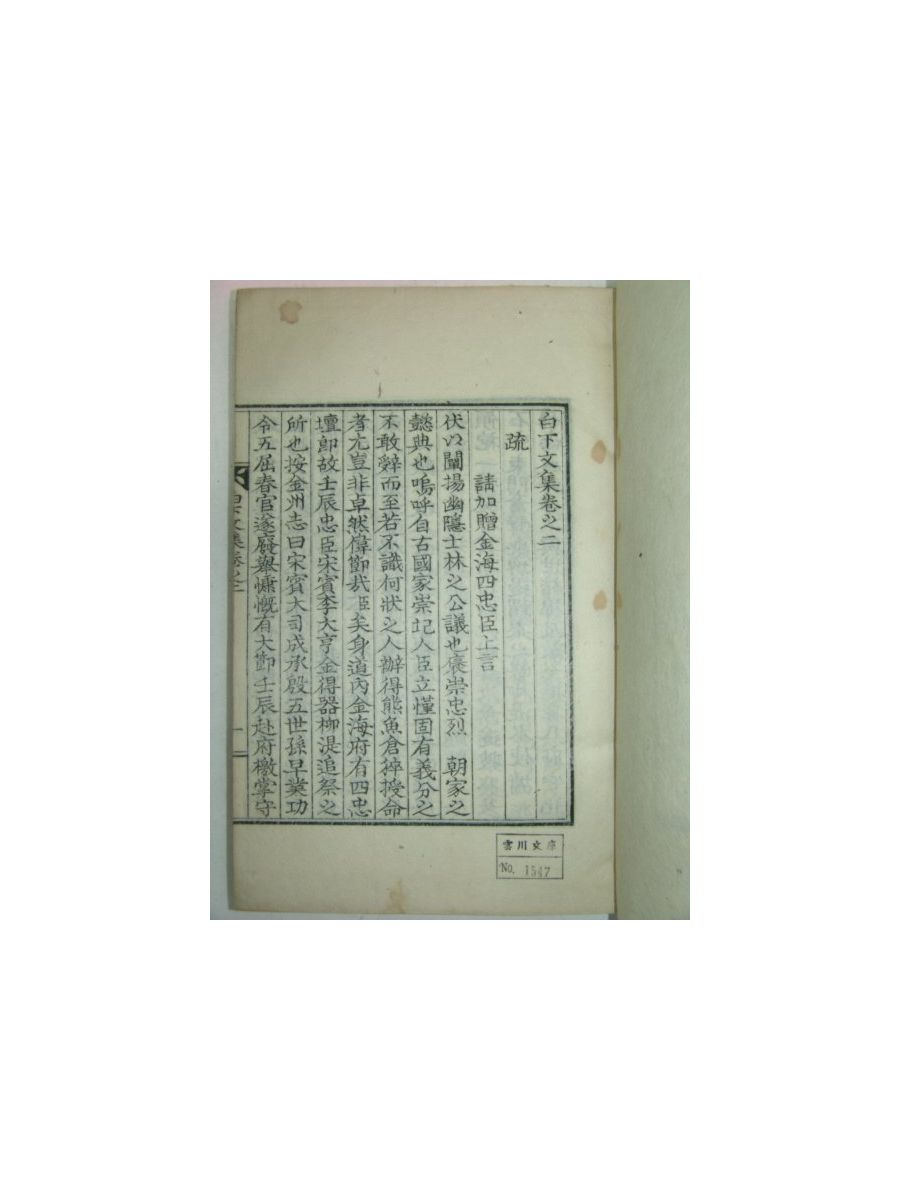 白下文集卷之二
疏
請加贈金海四忠臣上言
伏以闡揚幽隱士林之公議也褒崇忠烈 朝家之
懿典也嗚呼自古國家崇圮人臣立慬固有義分之
不敢辭而至若不識何狀之人辦得熊魚倉猝授命
者尤豈非卓然偉節哉臣矣身道內金海府有四忠
壇卽故壬辰忠臣宋賓李大亨金得器柳湜追祭之
所也按金州志曰宋賓大司成承殷五世孫早業功
令五屈春官遂廢擧慷慨有大節壬辰赴府檄掌守
白下文集卷之二
一
雲川文庫
No. 1547